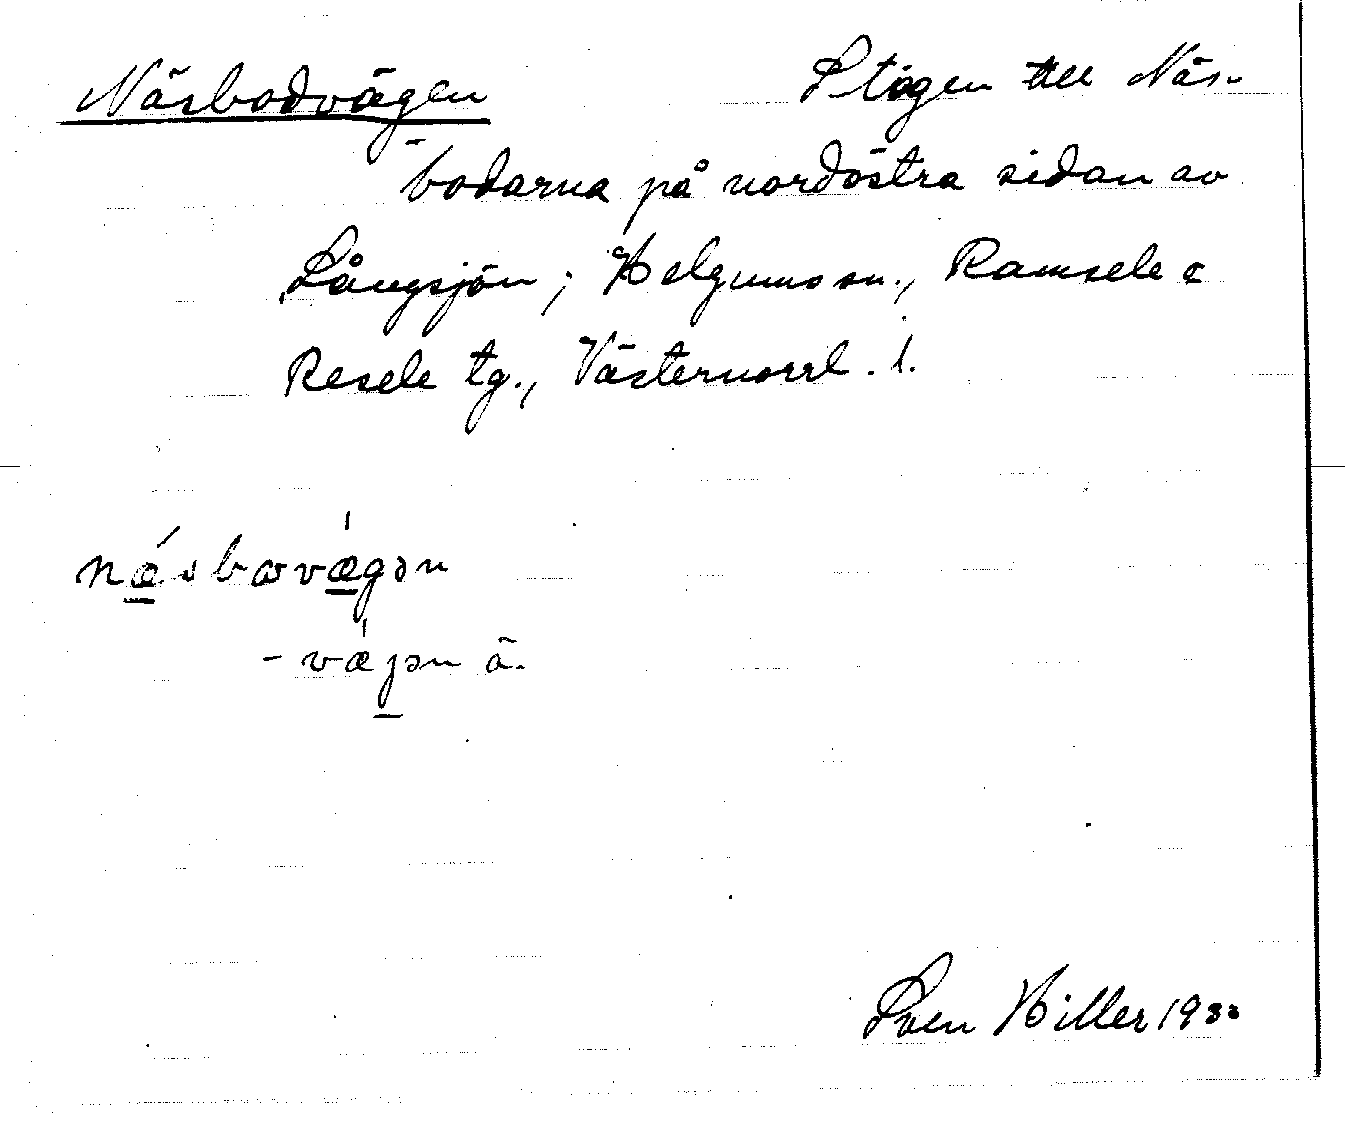 Näsbodvägen Stigen till Näs-
bodarna på nordöstra sidan av
Långsjön; Helgums sn., Ramsele o
Resele tg., Västernorrl. l.
nǽsbovæ̍gən
- væ̍jən ä.
Sven Hiller 1933